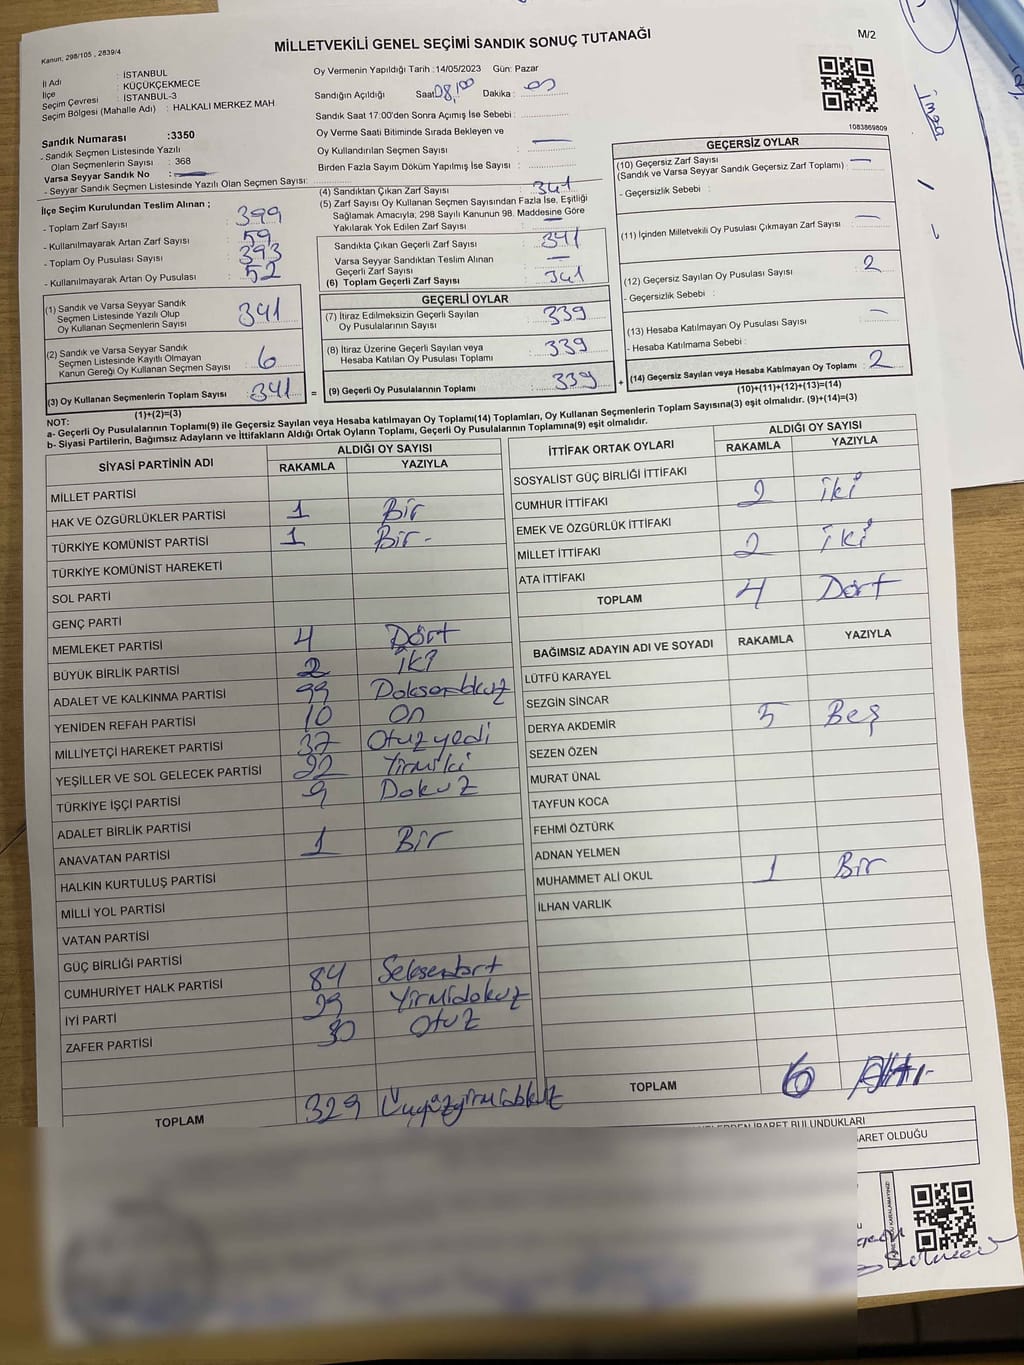 Kanun, 298/105 , 2839/4
MİLLETVEKİLİ GENEL SEÇİMİ SANDIK SONUÇ TUTANAĞI
M/2
İl Adı : İSTANBUL
İlçe : KÜÇÜKÇEKMECE
Seçim Çevresi : İSTANBUL-3
Seçim Bölgesi (Mahalle Adı) : HALKALI MERKEZ MAH.
Oy Vermenin Yapıldığı Tarih : 14/05/2023 Gün: Pazar
Sandığın Açıldığı Saat: 08,00 Dakika :
Sandık Saat 17:00'den Sonra Açımış İse Sebebi :
Oy Verme Saati Bitiminde Sırada Bekleyen ve
Oy Kullandırılan Seçmen Sayısı : —
Birden Fazla Sayım Döküm Yapılmış İse Sayısı :
1083869809
imza
Sandık Numarası :3350
- Sandık Seçmen Listesinde Yazılı
Olan Seçmenlerin Sayısı : 368
Varsa Seyyar Sandık No : —
- Seyyar Sandık Seçmen Listesinde Yazılı Olan Seçmen Sayısı:
İlçe Seçim Kurulundan Teslim Alınan ;
- Toplam Zarf Sayısı : 399
- Kullanılmayarak Artan Zarf Sayısı : 59
- Toplam Oy Pusulası Sayısı : 393
- Kullanılmayarak Artan Oy Pusulası : 52
(1) Sandık ve Varsa Seyyar Sandık
Seçmen Listesinde Yazılı Olup
Oy Kullanan Seçmenlerin Sayısı : 341
(2) Sandık ve Varsa Seyyar Sandık
Seçmen Listesinde Kayıtlı Olmayan
Kanun Gereği Oy Kullanan Seçmen Sayısı : 6
(3) Oy Kullanan Seçmenlerin Toplam Sayısı : 341
(1)+(2)=(3)
(4) Sandıktan Çıkan Zarf Sayısı : 341
(5) Zarf Sayısı Oy Kullanan Seçmen Sayısından Fazla İse, Eşitliği
Sağlamak Amacıyla; 298 Sayılı Kanunun 98. Maddesine Göre
Yakılarak Yok Edilen Zarf Sayısı : —
Sandıkta Çıkan Geçerli Zarf Sayısı : 341
Varsa Seyyar Sandıktan Teslim Alınan
Geçerli Zarf Sayısı : —
(6) Toplam Geçerli Zarf Sayısı : 341
GEÇERLİ OYLAR
(7) İtiraz Edilmeksizin Geçerli Sayılan
Oy Pusulalarının Sayısı : 339
(8) İtiraz Üzerine Geçerli Sayılan veya
Hesaba Katılan Oy Pusulası Toplamı : 339
= (9) Geçerli Oy Pusulalarının Toplamı : 339 +
GEÇERSİZ OYLAR
(10) Geçersiz Zarf Sayısı : —
(Sandık ve Varsa Seyyar Sandık Geçersiz Zarf Toplamı)
- Geçersizlik Sebebi :
(11) İçinden Milletvekili Oy Pusulası Çıkmayan Zarf Sayısı : —
(12) Geçersiz Sayılan Oy Pusulası Sayısı : 2
- Geçersizlik Sebebi :
(13) Hesaba Katılmayan Oy Pusulası Sayısı : —
- Hesaba Katılmama Sebebi :
(14) Geçersiz Sayılan veya Hesaba Katılmayan Oy Toplamı : 2
(10)+(11)+(12)+(13)=(14)
NOT:
a- Geçerli Oy Pusulalarının Toplamı(9) ile Geçersiz Sayılan veya Hesaba katılmayan Oy Toplamı(14) Toplamları, Oy Kullanan Seçmenlerin Toplam Sayısına(3) eşit olmalıdır. (9)+(14)=(3)
b- Siyasi Partilerin, Bağımsız Adayların ve İttifakların Aldığı Ortak Oyların Toplamı, Geçerli Oy Pusulalarının Toplamına(9) eşit olmalıdır.
SİYASİ PARTİNİN ADI ALDIĞI OY SAYISI
RAKAMLA YAZIYLA
MİLLET PARTİSİ
HAK VE ÖZGÜRLÜKLER PARTİSİ 1 Bir
TÜRKİYE KOMÜNİST PARTİSİ 1 Bir-
TÜRKİYE KOMÜNİST HAREKETİ
SOL PARTİ
GENÇ PARTİ
MEMLEKET PARTİSİ 4 Dört
BÜYÜK BİRLİK PARTİSİ 2 iki
ADALET VE KALKINMA PARTİSİ 99 Doksandokuz
YENİDEN REFAH PARTİSİ 10 On
MİLLİYETÇİ HAREKET PARTİSİ 37 Otuzyedi
YEŞİLLER VE SOL GELECEK PARTİSİ 22 Yirmiiki
TÜRKİYE İŞÇİ PARTİSİ 9 Dokuz
ADALET BİRLİK PARTİSİ
ANAVATAN PARTİSİ 1 Bir
HALKIN KURTULUŞ PARTİSİ
MİLLİ YOL PARTİSİ
VATAN PARTİSİ
GÜÇ BİRLİĞİ PARTİSİ
CUMHURİYET HALK PARTİSİ 84 Seksendört
İYİ PARTİ 29 Yirmidokuz
ZAFER PARTİSİ 30 Otuz
TOPLAM 329 Üçyüzyirmidokuz
İTTİFAK ORTAK OYLARI ALDIĞI OY SAYISI
RAKAMLA YAZIYLA
SOSYALİST GÜÇ BİRLİĞİ İTTİFAKI
CUMHUR İTTİFAKI 2 iki
EMEK VE ÖZGÜRLÜK İTTİFAKI
MİLLET İTTİFAKI 2 iki
ATA İTTİFAKI
TOPLAM 4 Dört
BAĞIMSIZ ADAYIN ADI VE SOYADI RAKAMLA YAZIYLA
LÜTFÜ KARAYEL
SEZGİN SİNCAR
DERYA AKDEMİR 5 Beş
SEZEN ÖZEN
MURAT ÜNAL
TAYFUN KOCA
FEHMİ ÖZTÜRK
ADNAN YELMEN
MUHAMMET ALİ OKUL 1 Bir
İLHAN VARLIK
TOPLAM 6 Altı-
İBARET BULUNDUKLARI
ARET OLDUĞU